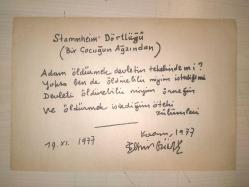 Stammheim Dörtlüğü
(Bir Çocuğun Ağzından)
Adam öldürmek devletin tekelinde mi?
Yoksa ben de öldürebilir miyim istediğimi
Devleti öldürebilir miyim örneğin
Ve öldürmek istediğim öteki
zulümleri
19.XI.1977
Kasım, 1977